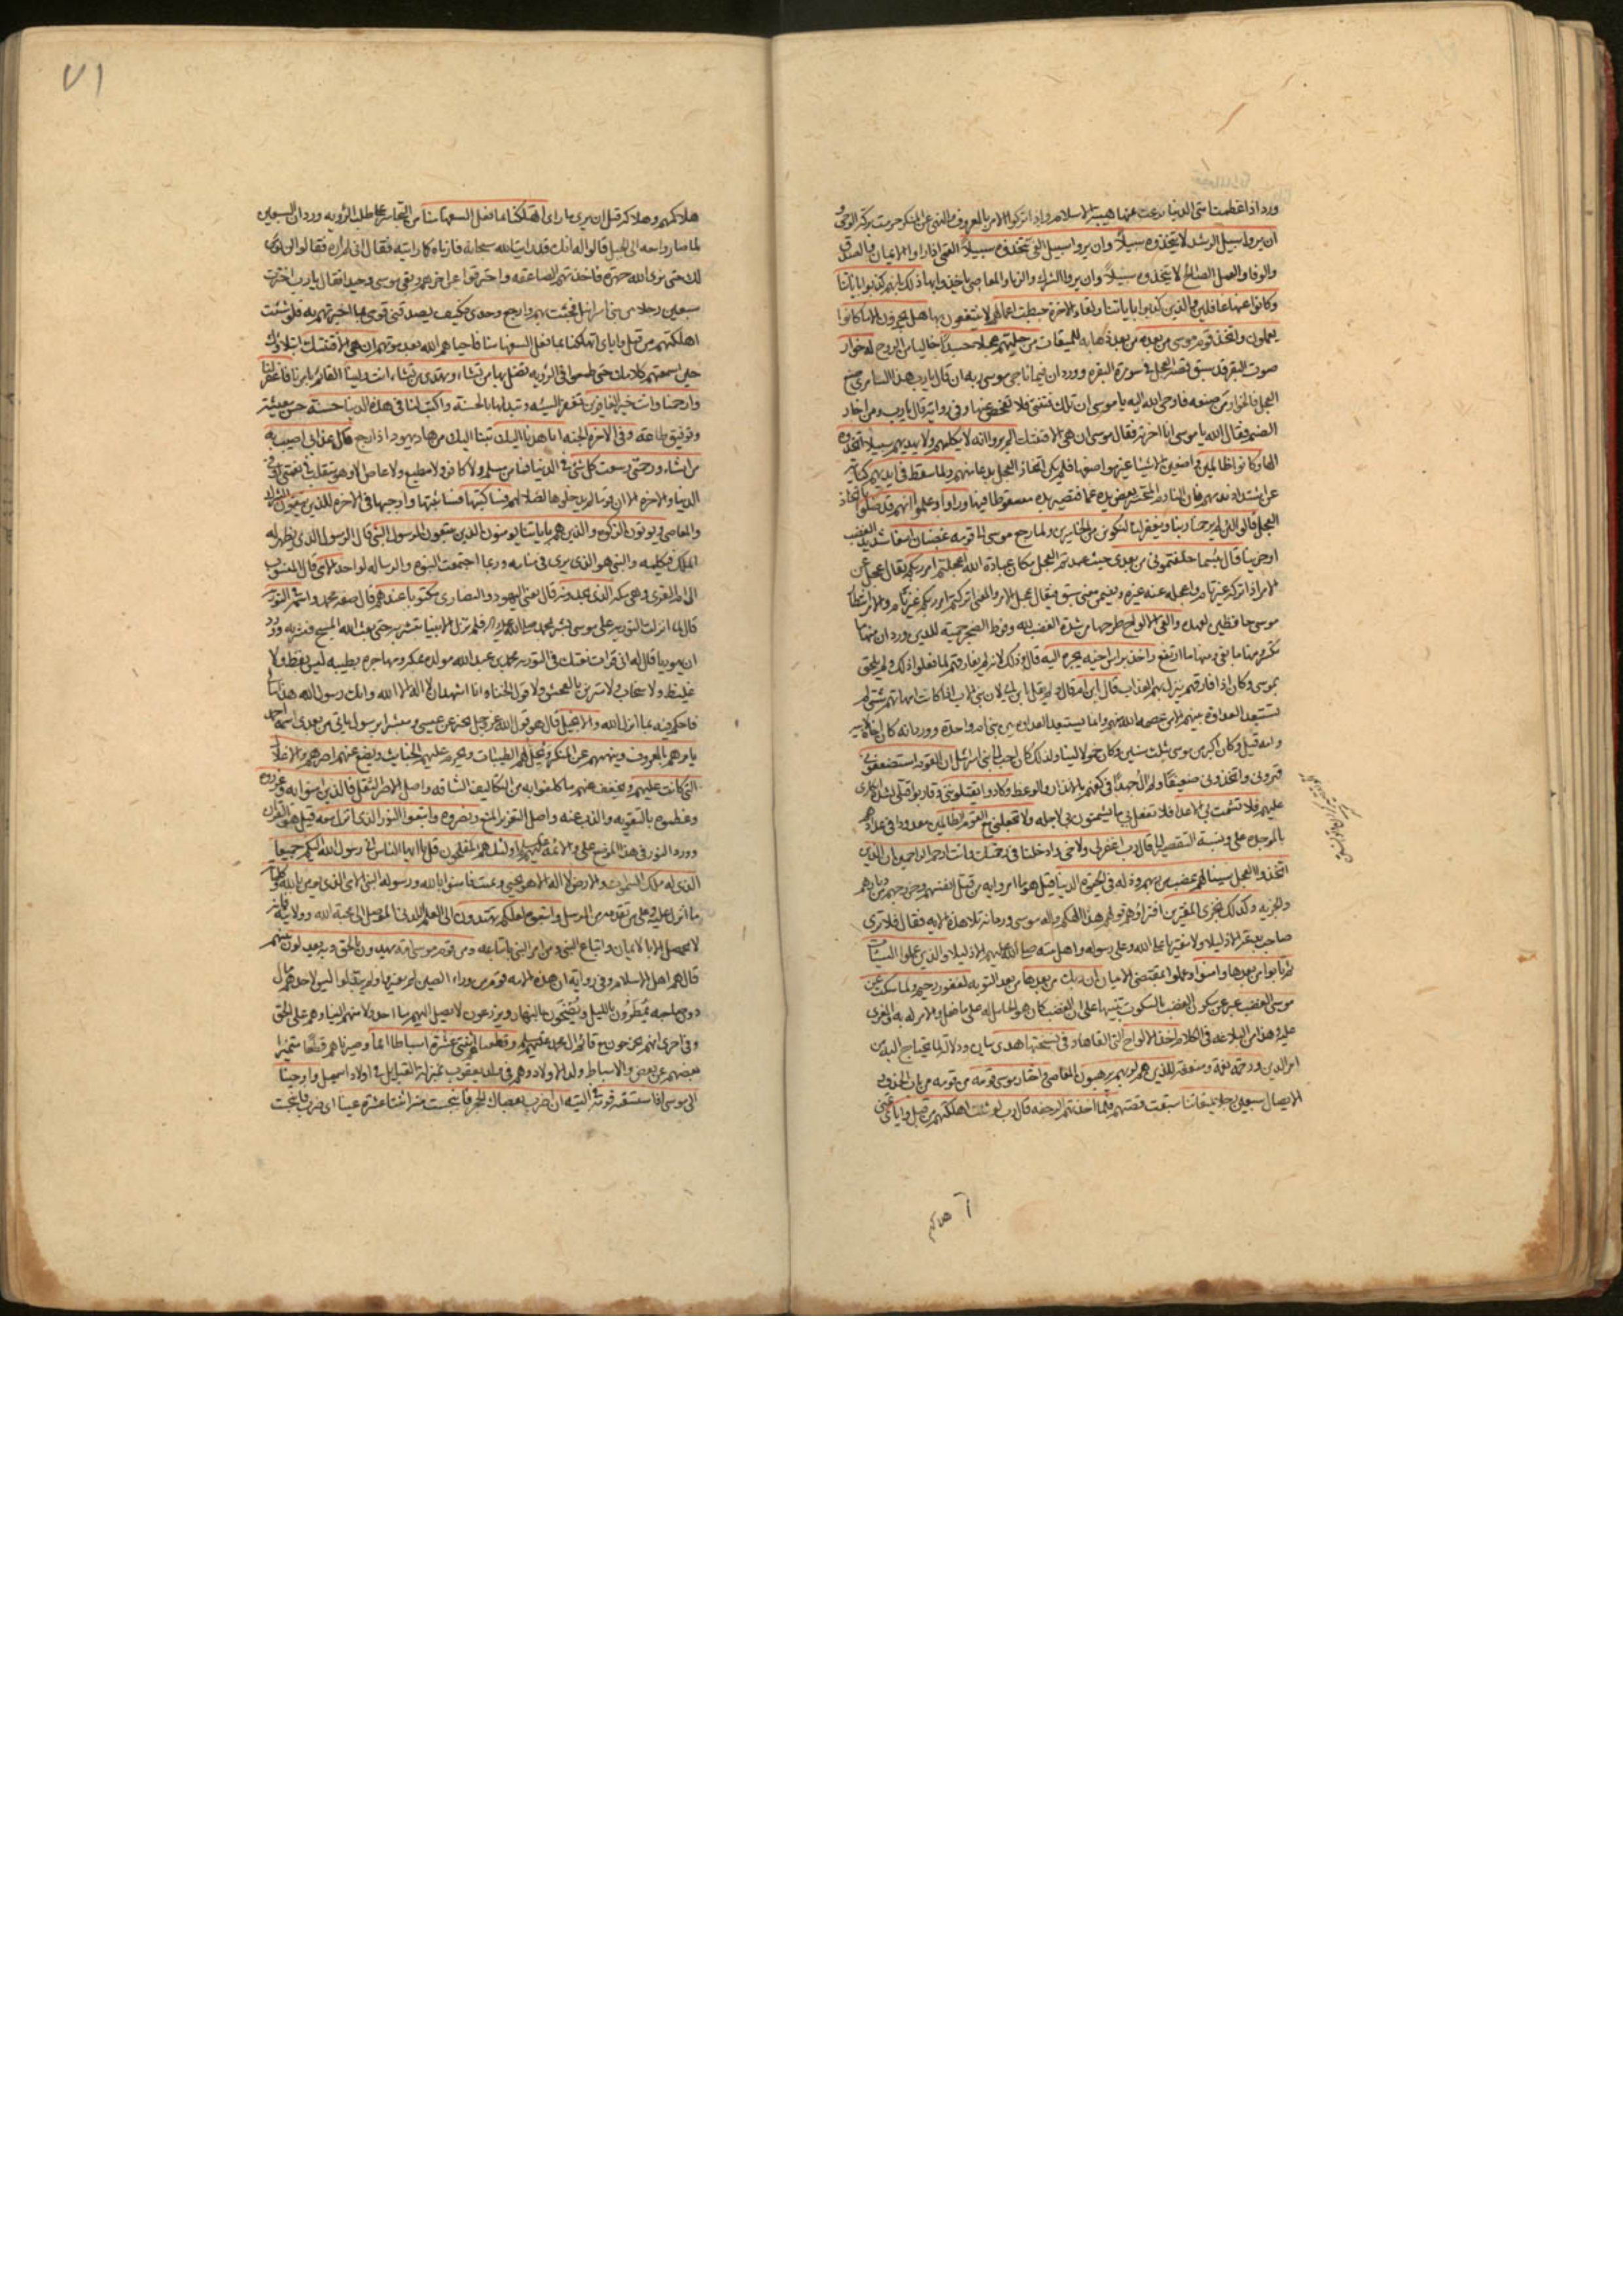 ورد اذا عظمت امتى الدنيا نزعت عنها هيبة الاسلام واذا تركوا الامر بالمعروف والنهى عن المنكر حرمت بركة الوحى و
ان يروا سبيل الرشد لا يتخذوه سبيلا وان يروا سبيل الغى يتخذوه سبيلا القمى اذا راوا الايمان والصدق
والوفا والعمل الصالح لا يتخذوه سبيلا وان يروا الشرك والزنا والمعاصى ياخذوا بها ذلك بانهم كذبوا باياتنا
وكانوا عنها غافلين والذين كذبوا باياتنا ولقاء الاخرة حبطت اعمالهم لا ينتفعون بها هل يجزون الا ما كانوا
يعملون واتخذ قوم موسى من بعده من بعد ذهابه للميقات من حليهم عجلا جسدا خاليا من الروح له خوار
صوت البقر قد سبق قصة العجل فى سورة البقرة وورد ان فيما ناجى موسى ربه ان قال يارب هذا السامرى صنع
العجل فالخوار من صنعه فاوحى الله اليه يا موسى ان تلك فتنتى فلا تفحص عنها وفى رواية قال يارب ومن اخار
الصنم فقال الله يا موسى انا اخرته فقال موسى ان هى الا فتنتك الم يروا انه لا يكلمهم ولا يهديهم سبيلا اتخذوه
الها وكانوا ظالمين واضعين الاشياء غير مواضعها فلم يكن اتخاذ العجل بدعا منهم ولما سقط فى ايديهم كناية
عن اشتداد ندمهم فان النادم المتحسر يعض يده غما فتصير يده مسقوطا فيها وراوا وعلموا انهم قد ضلوا باتخاذ
العجل قالوا لئن لم يرحمنا ربنا ويغفر لنا لنكونن من الخاسرين ولما رجع موسى الى قومه غضبان اسفا شديد الغضب
او حزينا قال بئسما خلفتمونى من بعدى حيث عبدتم العجل مكان عبادة الله اعجلتم امر ربكم يقال عجل عن
الامر اذا تركه غير تام واعجله عنه غيره ويضمن معنى سبق فيقال عجل الامر والمعنى اتركتم امر ربكم غير تام
موسى حافظين لعهده والقى الالواح طرحها من شدة الغضب لله وفرط الضجر حمية للدين وورد ان منها ما
تكسر ومنها ما بقى ومنها ما ارتفع واخذ براس اخيه يجره اليه قال وذلك لانه لم يفارقهم لما فعلوا ذلك ولم يلحق
بموسى وكان اذا فارقهم ينزل بهم العذاب قال ابن ام قال ولم يقل ابن ابى لان بنى الاب اذا كانت امهاتهم شتى لم
تستبعد العداوة بينهم الا من عصمه الله منهم وانما يستبعد العداوة بين بنى ام واحدة وورد انه كان اخاه لابيه
وامه قيل وكان اكبر من موسى بثلث سنين وكان حمولا لينا ولذلك كان احب الى بنى اسرائيل ان القوم استضعفونى
قهرونى واتخذونى ضعيفا ولم ال جهدا فى كفهم بالانذار والوعظ وكادوا يقتلوننى وقاربوا قتلى لشدة انكارى
عليهم فلا تشمت بى الاعداء فلا تفعل بى ما يشمتون بى لاجله ولا تجعلنى مع القوم الظالمين معدودا فى عدادهم
بالموجدة على ونسبة التقصير الى قال رب اغفر لى ولاخى وادخلنا فى رحمتك وانت ارحم الراحمين ان الذين
اتخذوا العجل سينالهم غضب من ربهم وذلة فى الحيوة الدنيا قيل هو ما امروا به من قتل انفسهم وخروجهم من ديارهم
والجزية وكذلك نجزى المفترين افتراؤهم قولهم هذا الهكم واله موسى ورد انه تلا هذه الاية فقال فلا ترى
صاحب بدعة الا ذليلا ولا مفتريا على الله وعلى رسوله واهل بيته صلى الله عليهم الا ذليلا والذين عملوا السيئات
ثم تابوا من بعدها وامنوا وعملوا بمقتضى الايمان ان ربك من بعدها من بعد التوبة لغفور رحيم ولما سكت عن
موسى الغضب عبر عن سكون الغضب بالسكوت تنبيها على ان الغضب كان هو الحامل له على ما فعل والامر له به والمغرى
عليه وهذا من البلاغة فى الكلام اخذ الالواح التى القاها وفى نسختها هدى بيان ودلالة لما يحتاج اليه من
امر الدين ورحمة نعمة ومنفعة للذين هم لربهم يرهبون المعاصى واختار موسى قومه من قومه من باب الحذف و
الايصال سبعين رجلا لميقاتنا سبقت قصتهم فلما اخذتهم الرجفة قال رب لو شئت اهلكتهم من قبل واياى تمنى
هلاكهم
٧١
هلاكهم وهلاكه قبل ان يرى ما راى اتهلكنا بما فعل السفهاء منا من التجاسر على طلب الرؤية ورد ان السبعين
لما صاروا معه الى الجبل قالوا له انك قد رايت الله سبحانه فارناه كما رايته فقال انى لم اره فقالوا لن نؤمن
لك حتى نرى الله جهرة فاخذتهم الصاعقة واحترقوا عن اخرهم وبقى موسى وحيدا فقال يارب اخترت
سبعين رجلا من بنى اسرائيل فجئت بهم وارجع وحدى فكيف يصدقنى قومى بما اخبرتهم به فلو شئت
اهلكتهم من قبل واياى اتهلكنا بما فعل السفهاء منا فاحياهم الله بعد موتهم ان هى الا فتنتك ابتلاؤك
حين اسمعتهم كلامك حتى طمعوا فى الرؤية تضل بها من تشاء وتهدى من تشاء انت ولينا القائم بامرنا فاغفر لنا
وارحمنا وانت خير الغافرين تغفر السيئة وتبدلها بالحسنة واكتب لنا فى هذه الدنيا حسنة حسن معيشة
وتوفيق طاعة وفى الاخرة الجنة انا هدنا اليك تبنا اليك من هاد يهود اذا رجع قال عذابى اصيب به
من اشاء ورحمتى وسعت كل شئ فى الدنيا فما من مسلم ولا كافر ولا مطيع ولا عاص الا وهو متقلب فى نعمتى
الدنيا والاخرة الا ان قوما لم يدخلوها لضلالهم فساكتبها فساثبتها واوجبها فى الاخرة للذين يتقون الشرك
والمعاصى ويؤتون الزكوة والذين هم باياتنا يؤمنون الذين يتبعون الرسول النبى قال الرسول الذى يظهر له
الملك فيكلمه والنبى هو الذى يرى فى منامه وربما اجتمعت النبوة والرسالة لواحد الامى قال المنسوب
الى ام القرى وهى مكة الذى يجدونه قال يعنى اليهود والنصارى مكتوبا عندهم قال صفة محمد واسمه فى التورية
قال لما انزلت التورية على موسى بشر بمحمد صلى الله عليه واله فلم تزل الانبياء تبشر به حتى بعث الله المسيح فبشر به وورد
ان يهوديا قال له انى قرات نعتك فى التورية محمد بن عبد الله مولده بمكة ومهاجره بطيبة ليس بفظ ولا
غليظ ولا سخاب ولا مترين بالفحش ولا قول الخنا وانا اشهد ان لا اله الا الله وانك رسول الله هذا مالى
فاحكم فيه بما انزل الله والانجيل قال هو قول الله عز وجل يخبر عن عيسى ومبشرا برسول ياتى من بعدى اسمه احمد
يامرهم بالمعروف وينهيهم عن المنكر ويحل لهم الطيبات ويحرم عليهم الخبائث ويضع عنهم اصرهم والاغلال
التى كانت عليهم ويخفف عنهم ما كلفوا به من التكاليف الشاقة واصل الاصر الثقل فالذين امنوا به وعزروه
وعظموه بالتقوية والذب عنه واصل التعزير المنع ونصروه واتبعوا النور الذى انزل معه قيل هو القران
وورد النور فى هذا الموضع على والائمة عليهم السلام اولئك هم المفلحون قل يا ايها الناس انى رسول الله اليكم جميعا
الذى له ملك السموات والارض لا اله الا هو يحيى ويميت فامنوا بالله ورسوله النبى الامى الذى يؤمن بالله وكلماته
ما انزل عليه وعلى من تقدمه من الرسل واتبعوه لعلكم تهتدون الى العلم اللدنى الموصل الى محبة الله وولايته فانه
لا يحصل الا بالايمان واتباع النبى ومن امر النبى باتباعه ومن قوم موسى امة يهدون بالحق وبه يعدلون بينهم
قال هم اهل الاسلام وفى رواية ان هذه الامة قوم من وراء الصين لم يغيروا ولم يبدلوا ليس لاحدهم مال
دون صاحبه يمطرون بالليل ويضحون بالنهار ويزرعون لا يصل اليهم منا احد ولا منهم الينا وهم على الحق
وفى اخرى انهم يخرجون مع قائم ال محمد عليهم السلم وقطعناهم اثنتى عشرة اسباطا امما وصيرناهم قطعا متميزا
بعضهم عن بعض والاسباط ولد الاولاد وهم فى ولد يعقوب بمنزلة القبائل فى اولاد اسمعيل واوحينا
الى موسى اذ استسقيه قومه فى التيه ان اضرب بعصاك الحجر فانبجست منه اثنتا عشرة عينا اى ضرب فانبجست